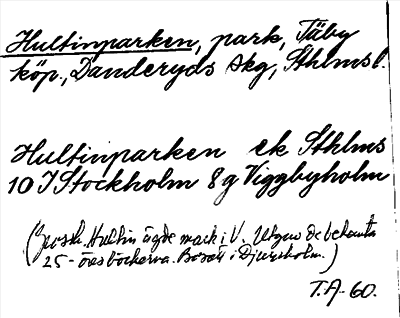 Hultinparken, park, Täby
köp., Danderyds skg, Sthlms l.
Hultinparken ek Sthlms
10 I Stockholm 8 g Viggbyholm
(Grossh. Hultin ägde mark i V. Utgav de bekanta
25-öresböckerna. Bosatt i Djursholm.)
T.A. 60.